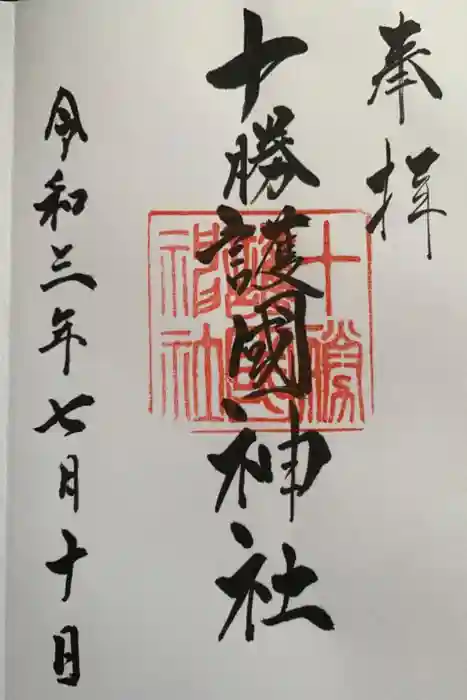 奉拝
十勝護國神社
十勝
護國
神社
令和三年七月十日